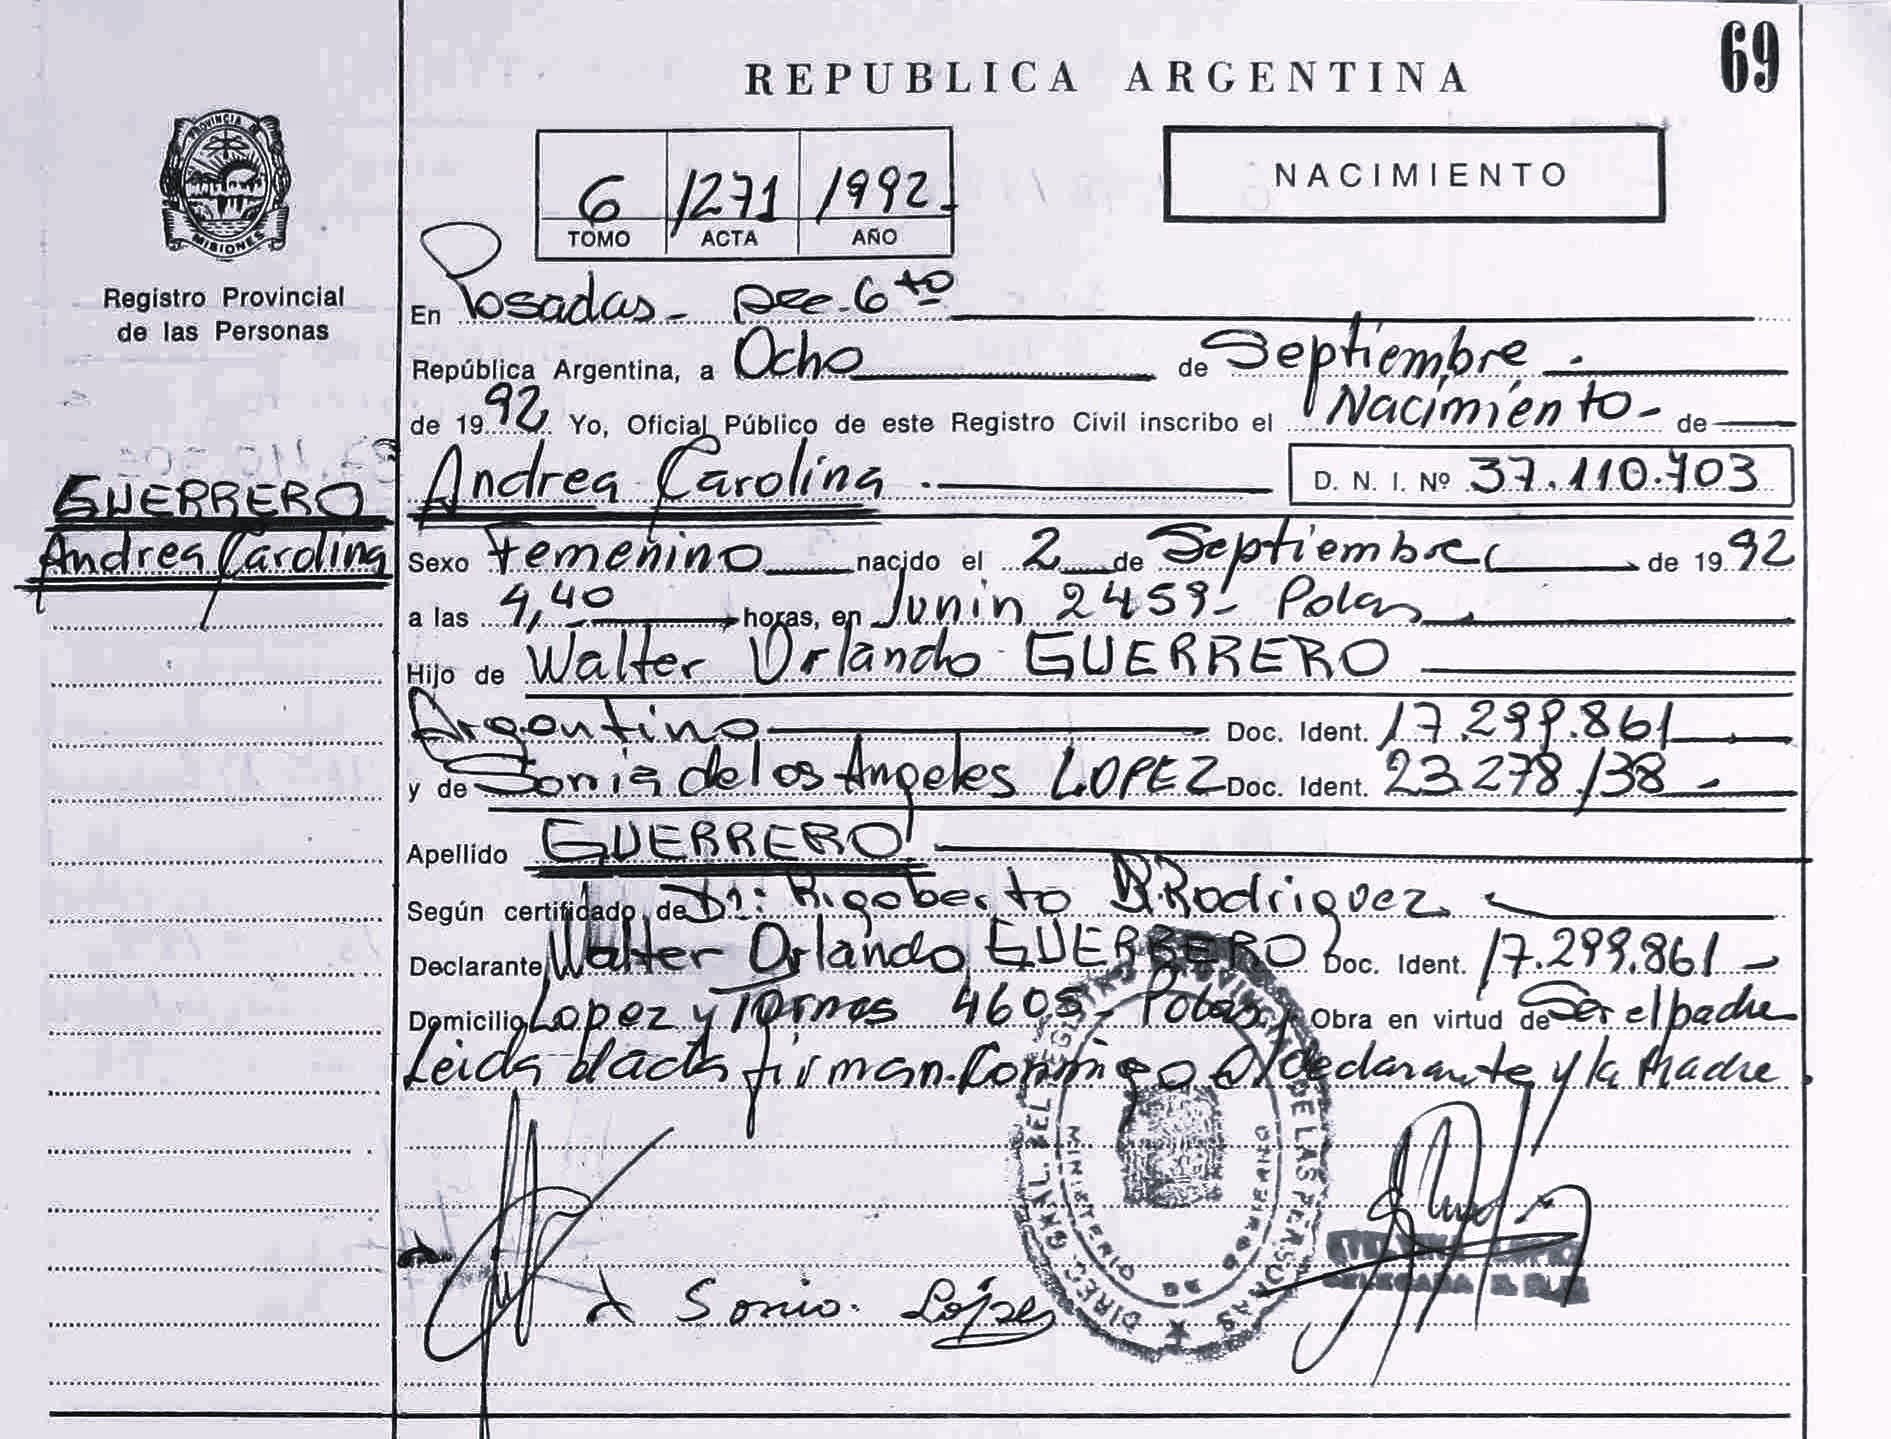 69
REPUBLICA ARGENTINA
PROVINCIA DE
MISIONES
Registro Provincial
de las Personas
6 1271 1992
TOMO ACTA AÑO
NACIMIENTO
En Posadas - Sec. 6to
República Argentina, a Ocho de Septiembre
de 1992 Yo, Oficial Público de este Registro Civil inscribo el Nacimiento - de
GUERRERO
Andrea Carolina
Andrea Carolina D. N. I. Nº 37.110.703
Sexo Femenino nacido el 2 de Septiembre de 1992
a las 4,40 horas, en Junin 2459 - Pdas
Hijo de Walter Orlando GUERRERO
Argentino Doc. Ident. 17.299.861
y de Sonia de los Angeles LOPEZ Doc. Ident. 23.278.138 -
Apellido GUERRERO
Según certificado de Dr: Rigoberto R. Rodriguez
Declarante Walter Orlando GUERRERO Doc. Ident. 17.299.861 -
Domicilio Lopez y Torres 4605 - Pdas Obra en virtud de Ser el padre
Leida el acta firman conmigo el declarante y la Madre.
DIREC. GRAL. DEL REGISTRO PROVINCIAL DE LAS PERSONAS
MINISTERIO DE GOBIERNO
Sonia López